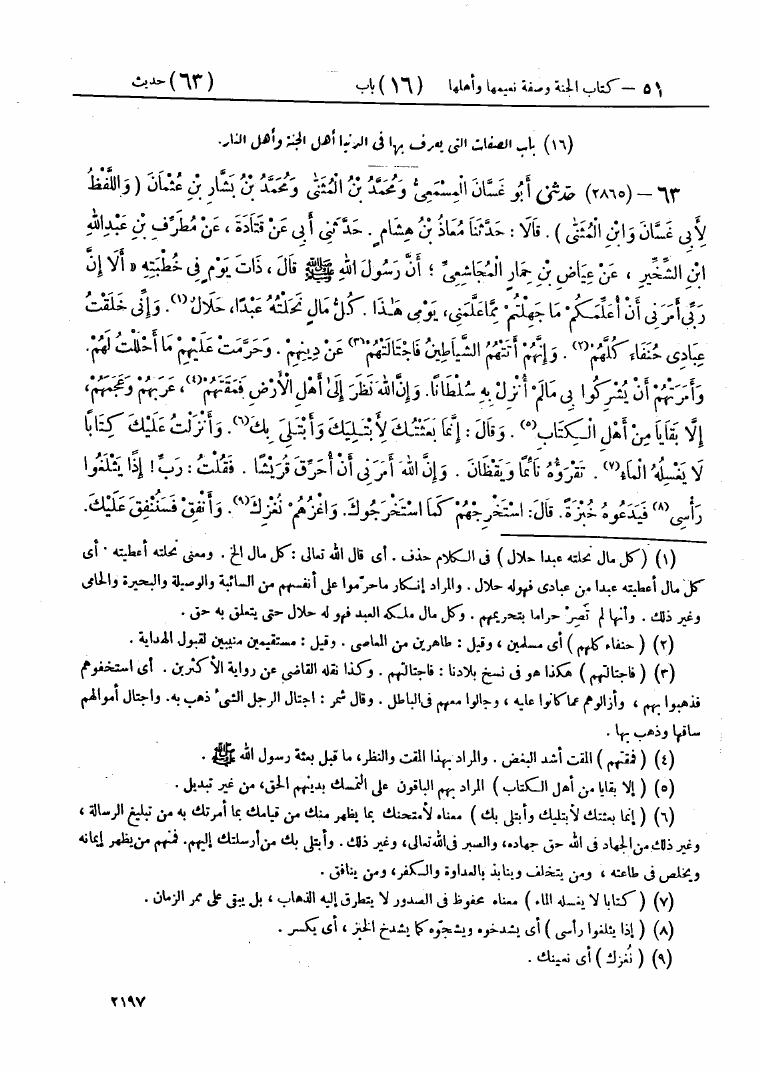 ٥١ – كتاب الجنة وصفة نعيمها وأهلها (١٦) باب (٦٣) حديث
(١٦) باب الصفات التى يعرف بها فى الدنيا أهل الجنة وأهل النار.
٦٣ – (٢٨٦٥) حَدَّثَنِى أَبُو غَسَّانَ الْمِسْمَعِىُّ وَمُحَمَّدُ بْنُ الْمُثَنَّى وَمُحَمَّدُ بْنُ بَشَّارِ بْنِ عُثْمَانَ (وَاللَّفْظُ
لِأَبِى غَسَّانَ وَابْنِ الْمُثَنَّى). قَالَا: حَدَّثَنَا مُعَاذُ بْنُ هِشَامٍ. حَدَّثَنِى أَبِى عَنْ قَتَادَةَ، عَنْ مُطَرِّفِ بْنِ عَبْدِ اللهِ
ابْنِ الشِّخِّيرِ، عَنْ عِيَاضِ بْنِ حِمَارٍ الْمُجَاشِعِىِّ؛ أَنَّ رَسُولَ اللهِ ﷺ قَالَ، ذَاتَ يَوْمٍ فِى خُطْبَتِهِ «أَلَا إِنَّ
رَبِّى أَمَرَنِى أَنْ أُعَلِّمَكُمْ مَا جَهِلْتُمْ مِمَّا عَلَّمَنِى، يَوْمِى هٰذَا. كُلُّ مَالٍ نَحَلْتُهُ عَبْدًا، حَلَالٌ(١). وَإِنِّى خَلَقْتُ
عِبَادِى حُنَفَاءَ كُلَّهُمْ(٢). وَإِنَّهُمْ أَتَتْهُمُ الشَّيَاطِينُ فَاجْتَالَتْهُمْ(٣) عَنْ دِينِهِمْ. وَحَرَّمَتْ عَلَيْهِمْ مَا أَحْلَلْتُ لَهُمْ.
وَأَمَرَتْهُمْ أَنْ يُشْرِكُوا بِى مَا لَمْ أُنْزِلْ بِهِ سُلْطَانًا. وَإِنَّ اللهَ نَظَرَ إِلَىٰ أَهْلِ الْأَرْضِ فَمَقَتَهُمْ(٤)، عَرَبَهُمْ وَعَجَمَهُمْ،
إِلَّا بَقَايَا مِنْ أَهْلِ الْكِتَابِ(٥). وَقَالَ: إِنَّمَا بَعَثْتُكَ لِأَبْتَلِيَكَ وَأَبْتَلِىَ بِكَ(٦). وَأَنْزَلْتُ عَلَيْكَ كِتَابًا
لَا يَغْسِلُهُ الْمَاءُ(٧). تَقْرَؤُهُ نَائِمًا وَيَقْظَانَ. وَإِنَّ اللهَ أَمَرَنِى أَنْ أُحَرِّقَ قُرَيْشًا. فَقُلْتُ: رَبِّ! إِذًا يَثْلَغُوا
رَأْسِى(٨) فَيَدَعُوهُ خُبْزَةً. قَالَ: اسْتَخْرِجْهُمْ كَمَا اسْتَخْرَجُوكَ. وَاغْزُهُمْ نُغْزِكَ(٩). وَأَنْفِقْ فَسَنُنْفِقَ عَلَيْكَ.
(١) (كل مال نحلته عبدا حلال) فى الكلام حذف. أى قال الله تعالى: كل مال الخ. ومعنى نحلته أعطيته. أى
كل مال أعطيته عبدا من عبادى فهو له حلال. والمراد إنكار ما حرّموا على أنفسهم من السائبة والوصيلة والبحيرة والحامى
وغير ذلك. وأنها لم تَصِرْ حراما بتحريمهم. وكل مال ملكه العبد فهو له حلال حتى يتعلق به حق.
(٢) (حنفاء كلهم) أى مسلمين، وقيل: طاهرين من المعاصى. وقيل: مستقيمين منيبين لقبول الهداية.
(٣) (فاجتالتهم) هكذا هو فى نسخ بلادنا: فاجتالتهم. وكذا نقله القاضى عن رواية الأكثرين. أى استخفوهم
فذهبوا بهم، وأزالوهم عما كانوا عليه، وجالوا معهم فى الباطل. وقال شمر: اجتال الرجل الشىء ذهب به. واجتال أموالهم
ساقها وذهب بها.
(٤) (فمقتهم) المقت أشد البغض. والمراد بهذا المقت والنظر، ما قبل بعثة رسول الله ﷺ.
(٥) (إلا بقايا من أهل الكتاب) المراد بهم الباقون على التمسك بدينهم الحق، من غير تبديل.
(٦) (إنما بعثتك لأبتليك وأبتلى بك) معناه لأمتحنك بما يظهر منك من قيامك بما أمرتك به من تبليغ الرسالة،
وغير ذلك من الجهاد فى الله حق جهاده، والصبر فى الله تعالى، وغير ذلك. وأبتلى بك من أرسلتك إليهم. فمنهم من يظهر إيمانه
ويخلص فى طاعته، ومن يتخلف وينابذ بالعداوة والكفر، ومن ينافق.
(٧) (كتابا لا يغسله الماء) معناه محفوظ فى الصدور لا يتطرق إليه الذهاب، بل يبقى على ممر الزمان.
(٨) (إذا يثلغوا رأسى) أى يشدخوه ويشجّوه كما يشدخ الخبز، أى يكسر.
(٩) (نُغزك) أى نعينك.
٢١٩٧